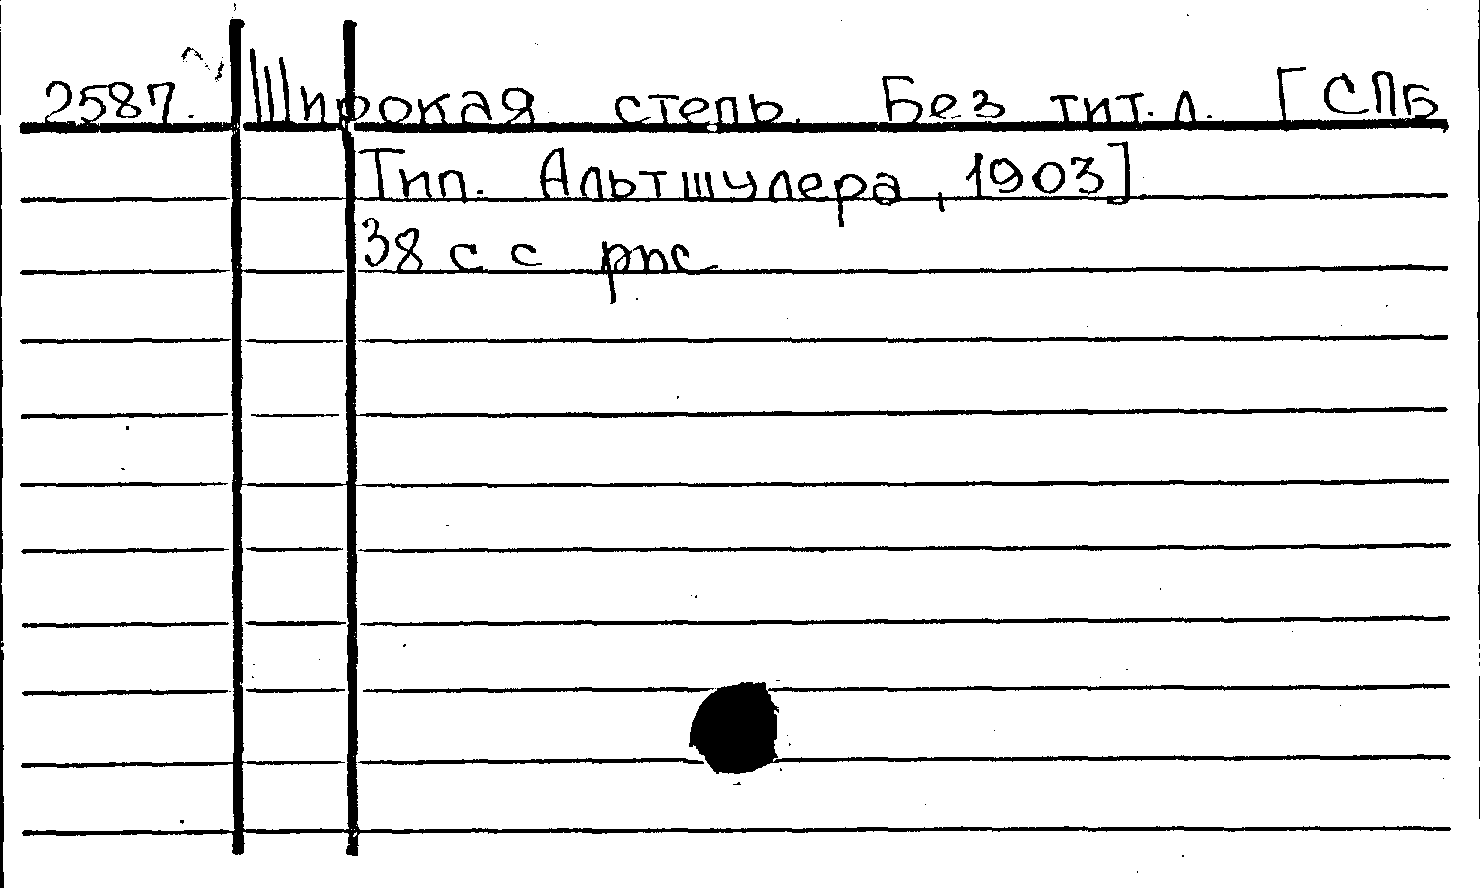 2587. Широкая степь. Без тит. л. [СПб
Тип. Альтшулера, 1903]
38 с с рис